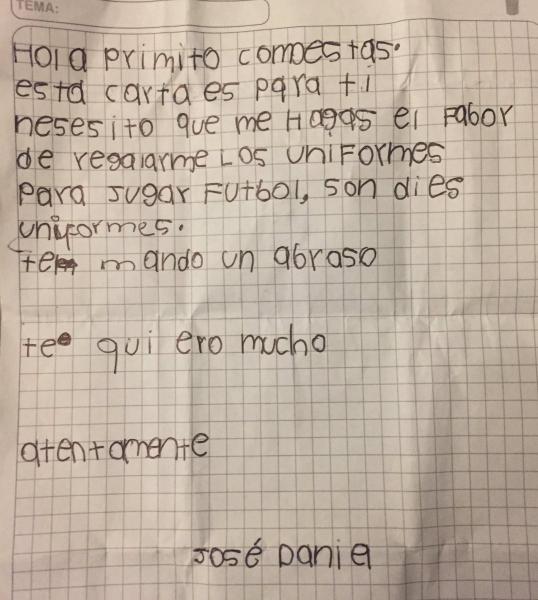 TEMA:
Hola primito comoestas.
esta carta es para ti
nesesito que me Hagas el Fabor
de regalarme Los uniFormes
para jugar FUtbol, son dies
uniformes.
te mando un abraso
te quiero mucho
atentamente
José Daniel